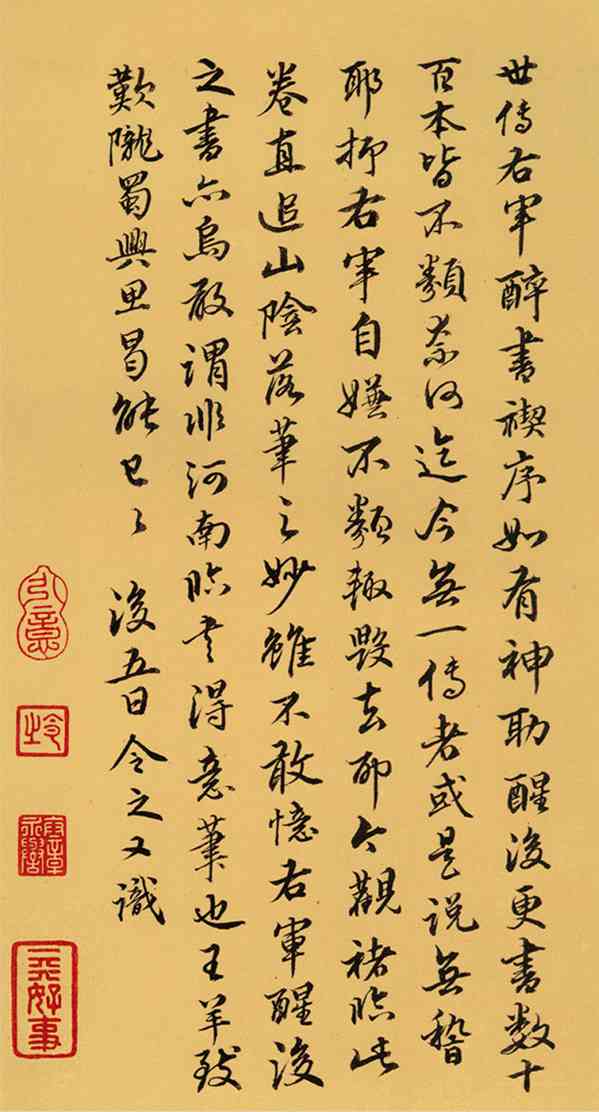 世傳右軍醉書禊序如有神助醒後更書數十
百本皆不類奈何迄今無一傳者或是説無稽
耶抑右軍自嫌不類輒毀去耶今觀褚臨此
卷直追山陰落筆之妙雖不敢憶右軍醒後
之書亦烏敢謂非河南臨書得意筆也王羊致
歎隴蜀興思曷能已々 後五日令之又識